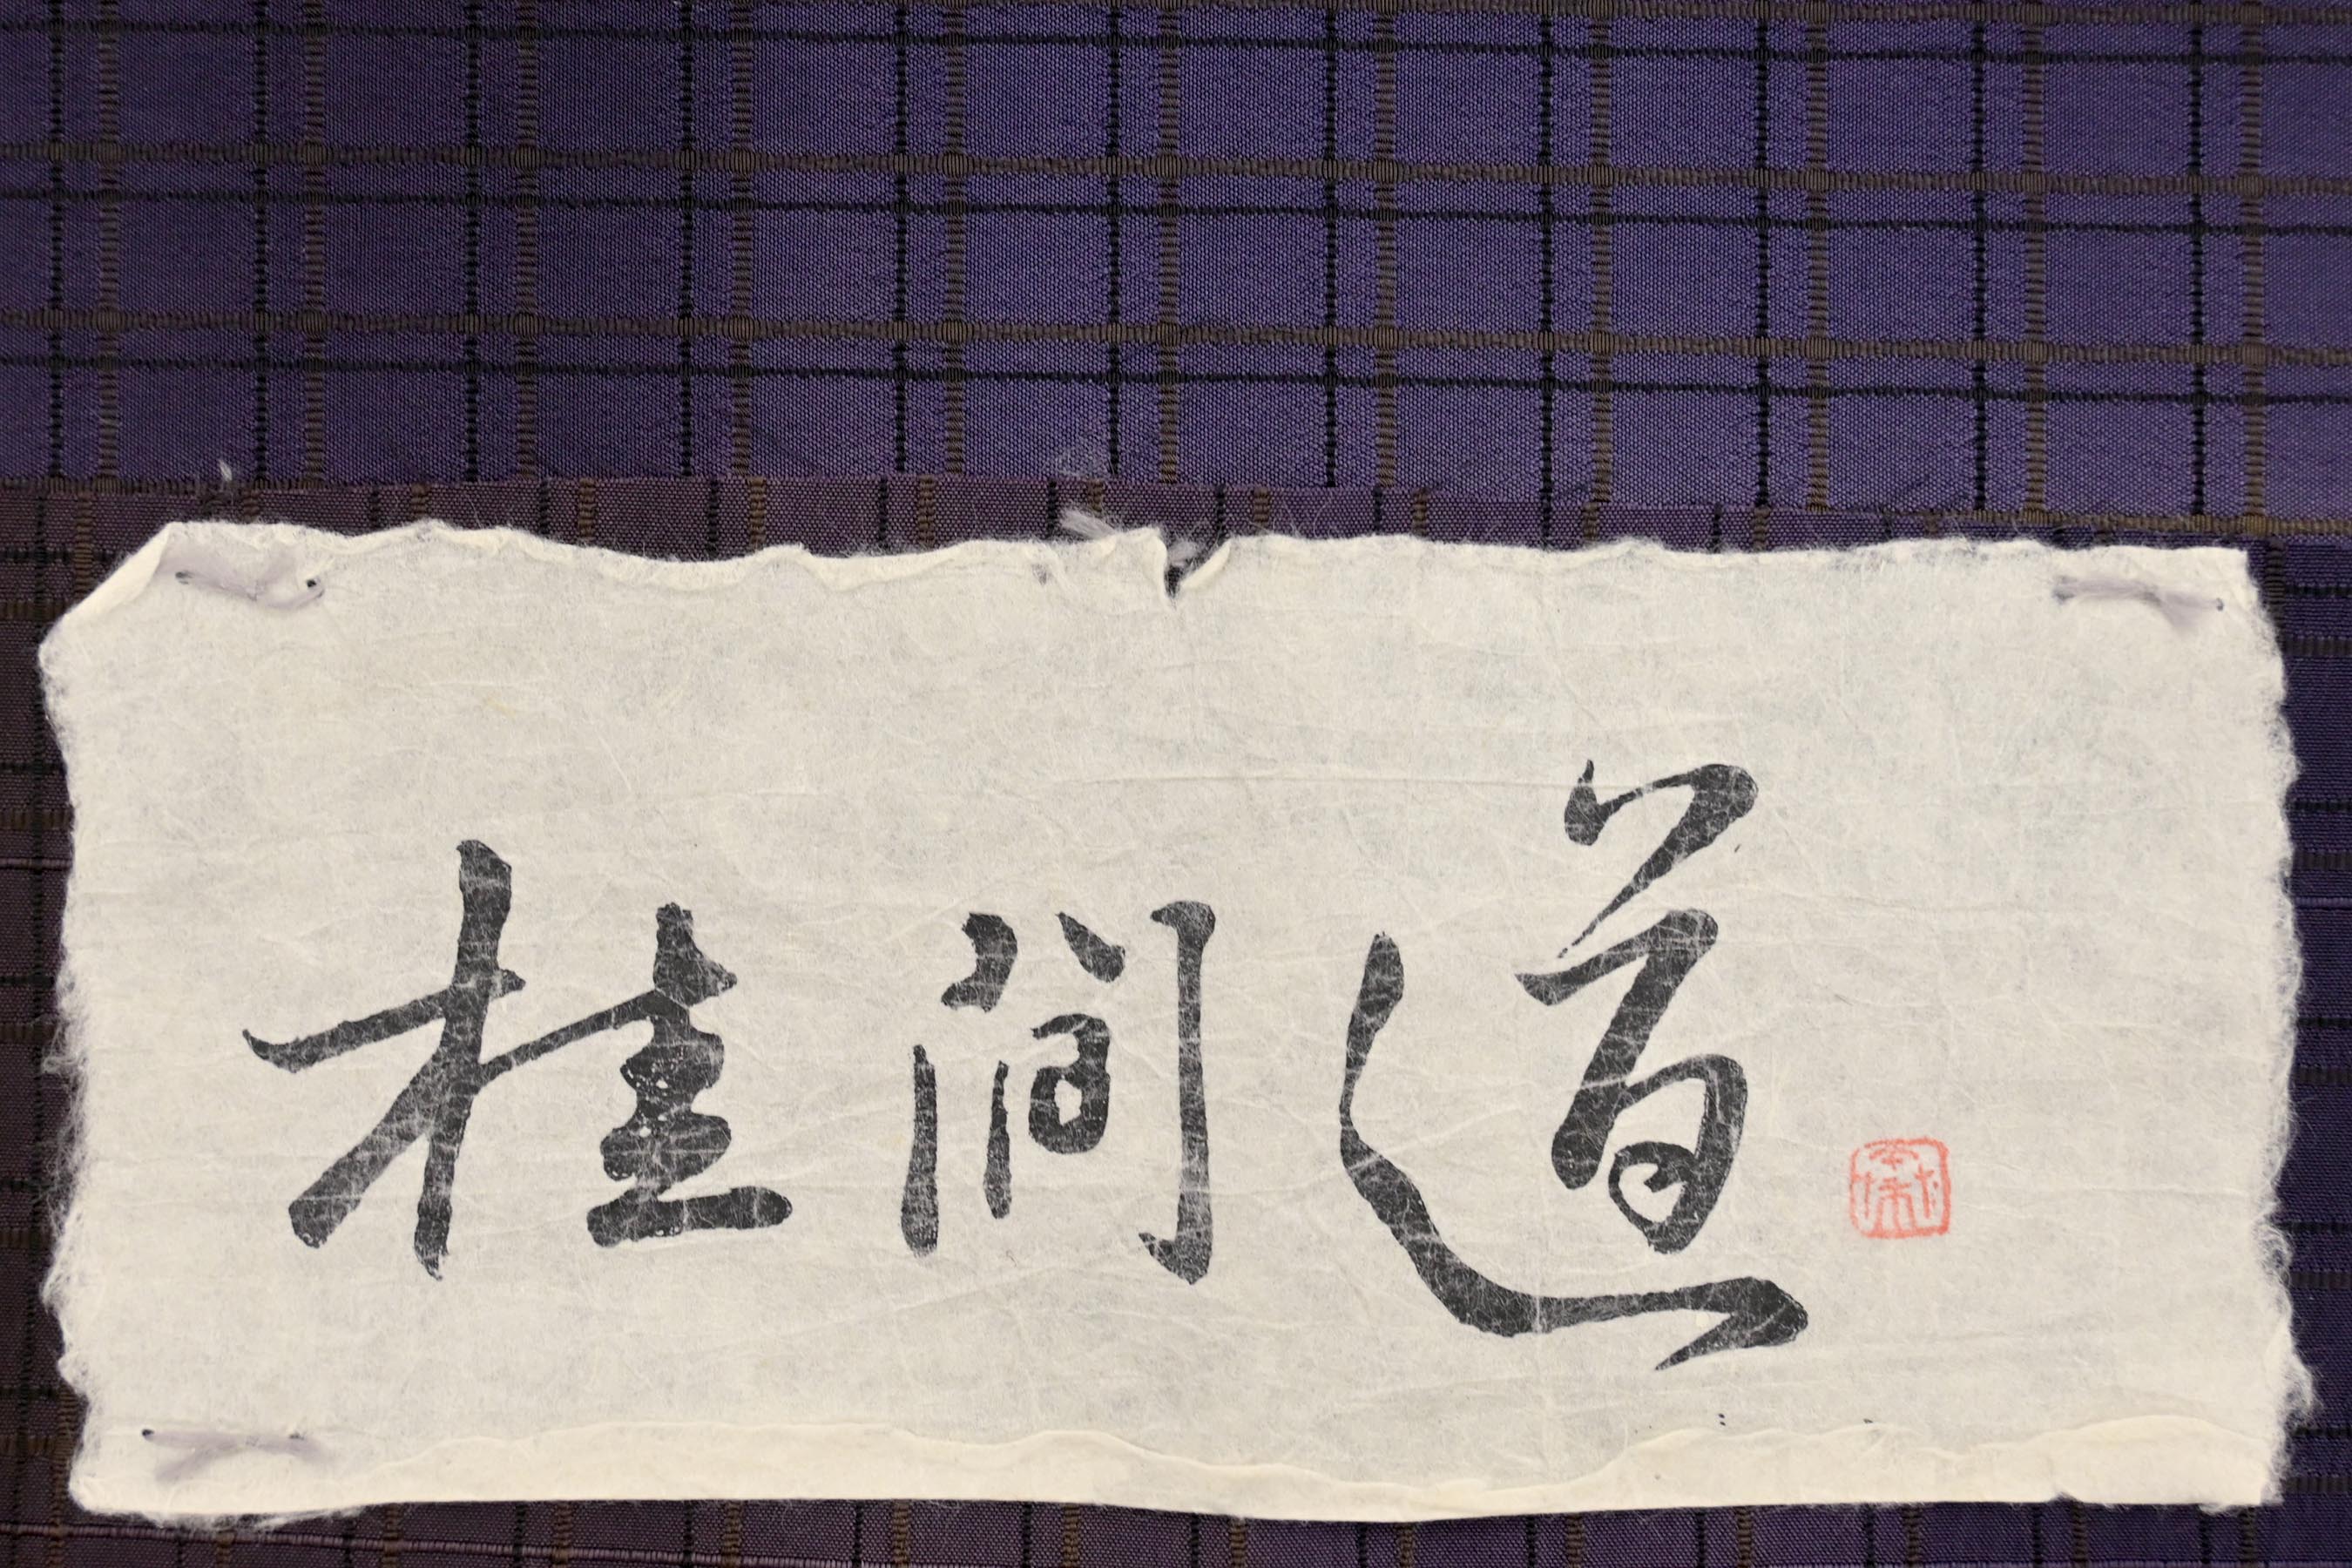 桂間道